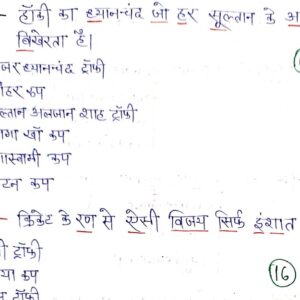 - हॉकी का ध्यानचंद जो हर सुल्तान के अ
बिखेरता है।
जर ध्यानचंद ट्रॉफी
हर कप
ल्तान अलजान शाह ट्रॉफी
गा खाँ कप
गास्वामी कप
टन कप
- क्रिकेट के रण से ऐसी विजय सिर्फ इंशात
ी ट्रॉफी
या कप
ट्रॉफी
16